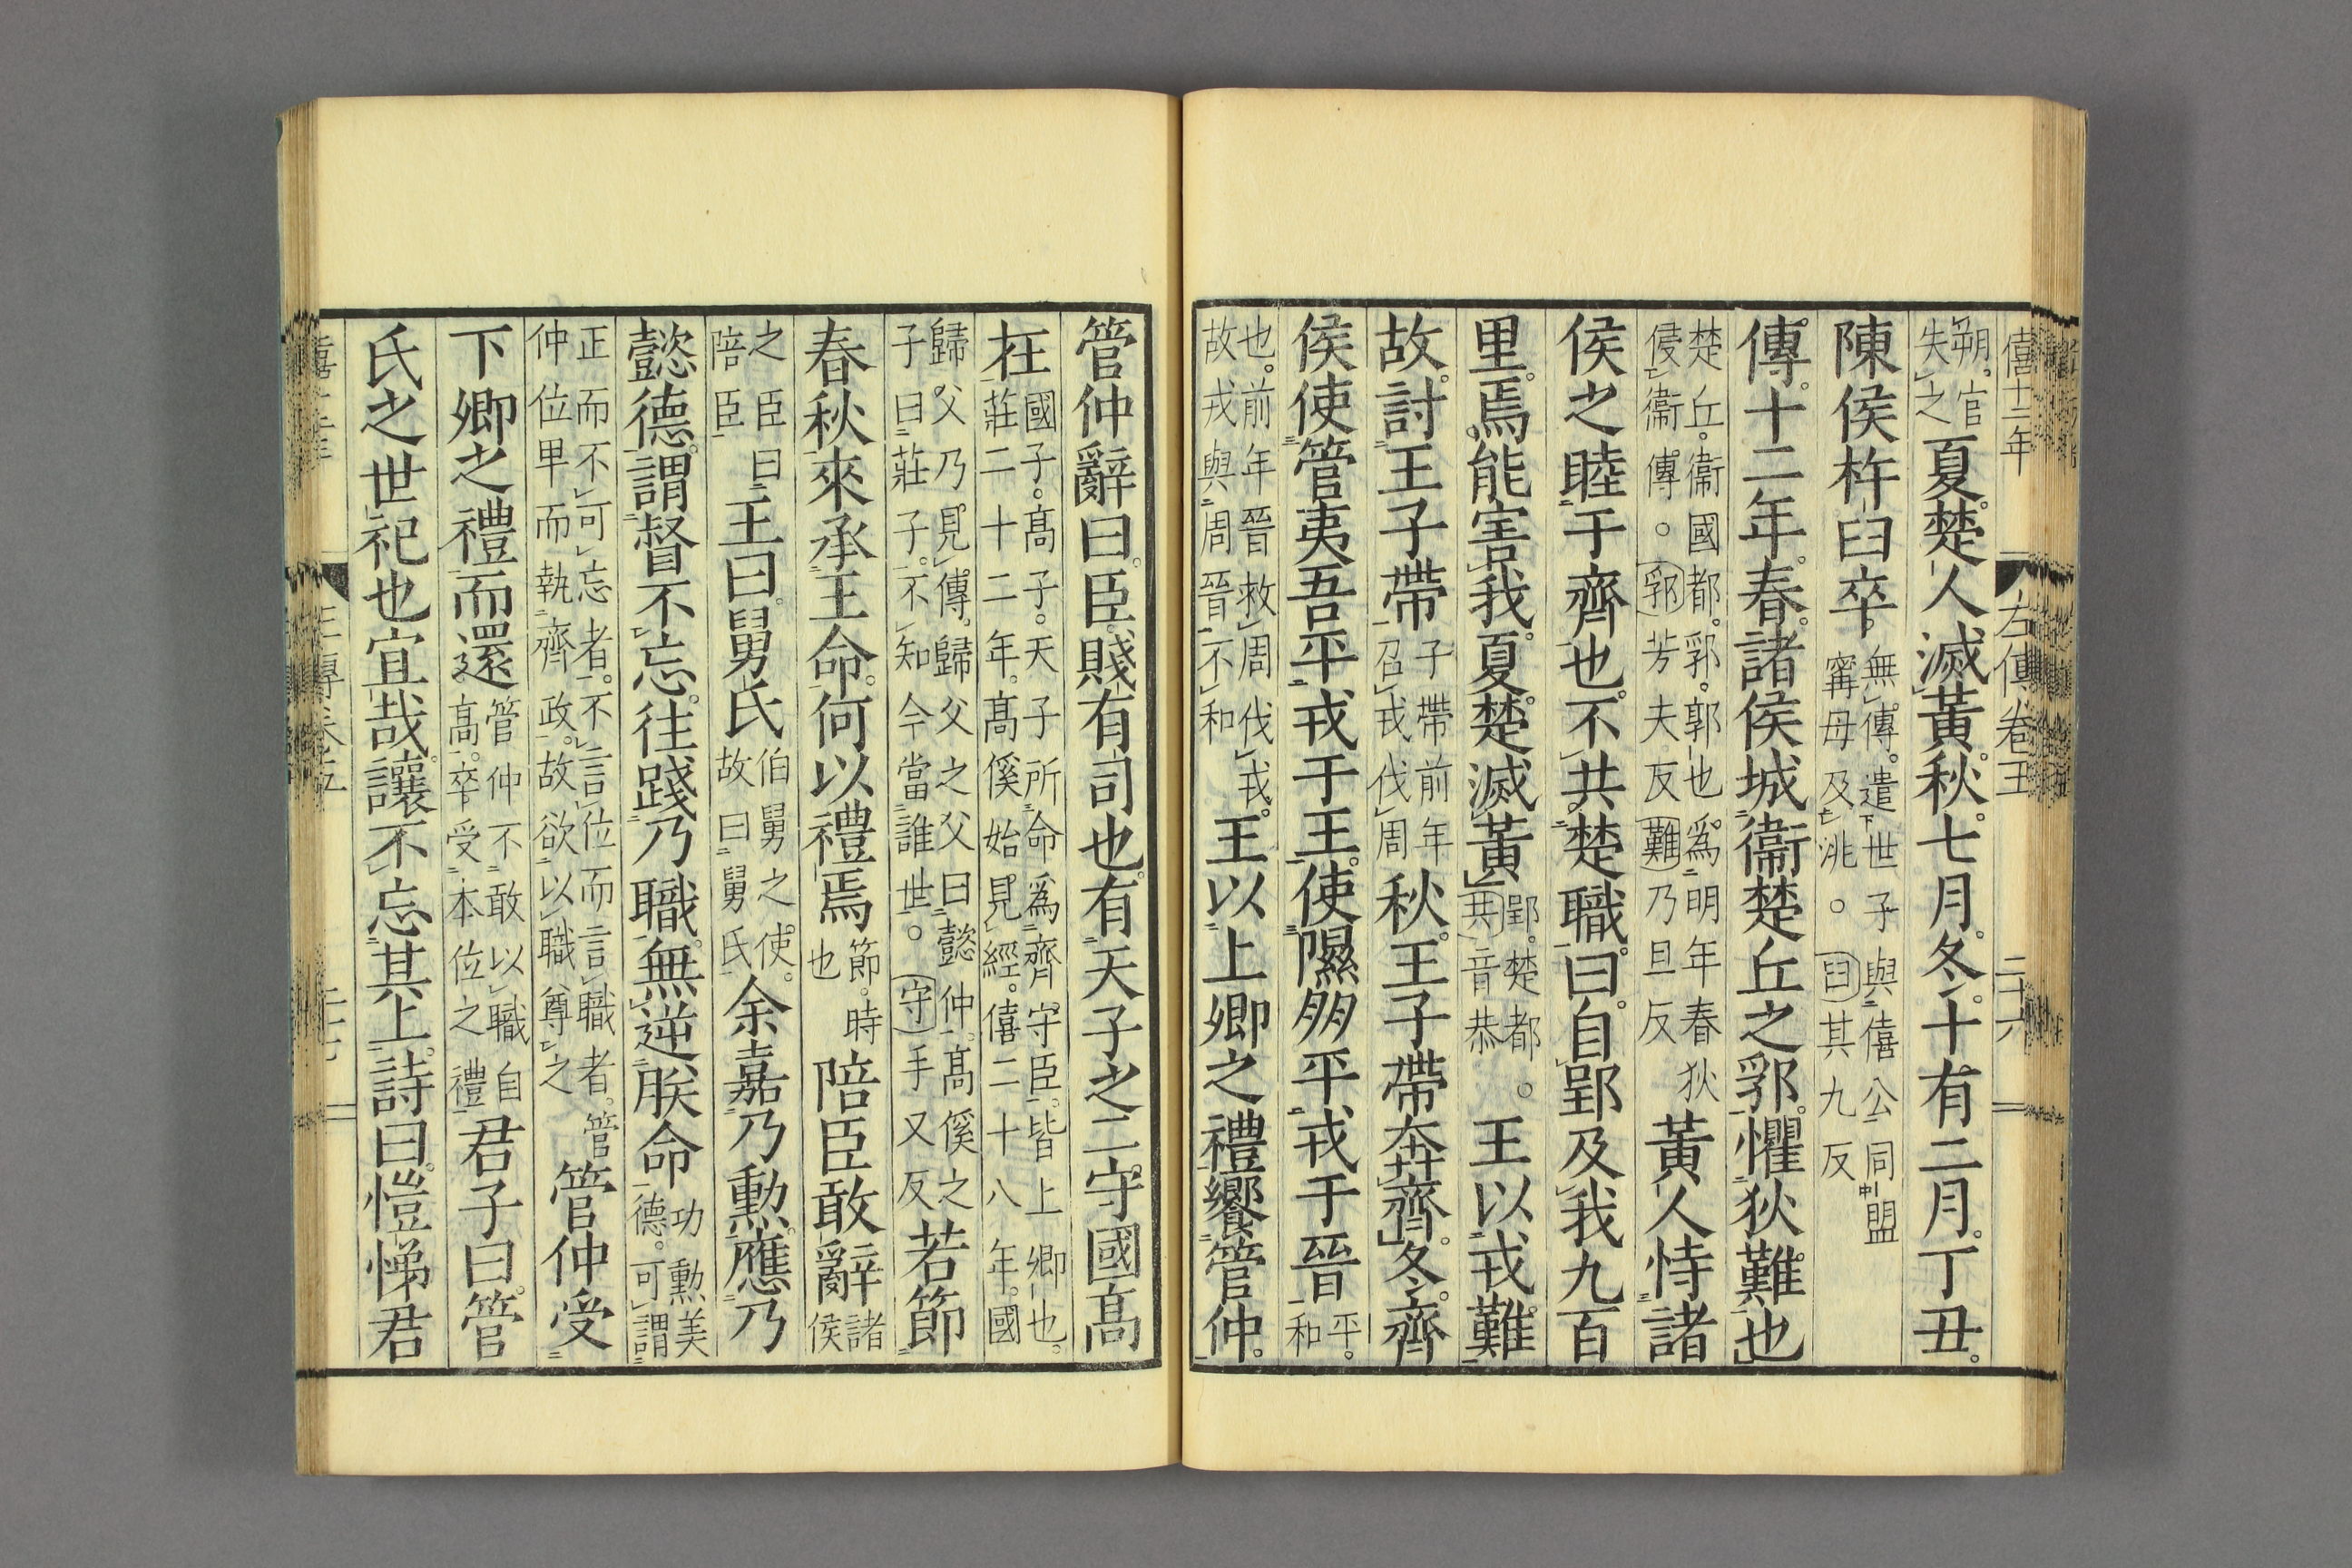 僖十二年 左傳卷五 二十六
朔官失之夏楚人滅黃秋七月冬十有二月丁丑
陳侯杵臼卒無傳遣世子與僖公同盟甯母及洮。臼其九反
傳十二年春諸侯城衞楚丘之郛懼狄難也
楚丘衞國都郛郭也爲明年春狄侵衞傳。郛芳夫反難乃旦反黃人恃諸
侯之睦于齊也不共楚職曰自郢及我九百
里焉能害我夏楚滅黃郢楚都。共音恭王以戎難
故討王子帶子帶前年召戎伐周秋王子帶奔齊冬齊
侯使管夷吾平戎于王使隰朋平戎于晉平和
也前年晉救周伐戎故戎與周晉不和王以上卿之禮饗管仲
管仲辭曰臣賤有司也有天子之二守國高
在國子高子天子所命爲齊守臣皆上卿也莊二十二年高傒始見經僖二十八年國
歸父乃見傳歸父之父曰懿仲高傒之子曰莊子不知今當誰世。守手又反若節
春秋來承王命何以禮焉節時也陪臣敢辭諸侯
之臣曰陪臣王曰舅氏伯舅之使故曰舅氏余嘉乃勳應乃
懿德謂督不忘往踐乃職無逆朕命功勳美德可謂
正而不可忘者不言位而言職者管仲位卑而執齊政故欲以職尊之管仲受
下卿之禮而還管仲不敢以職自高卒受本位之禮君子曰管
氏之世祀也宜哉讓不忘其上詩曰愷悌君